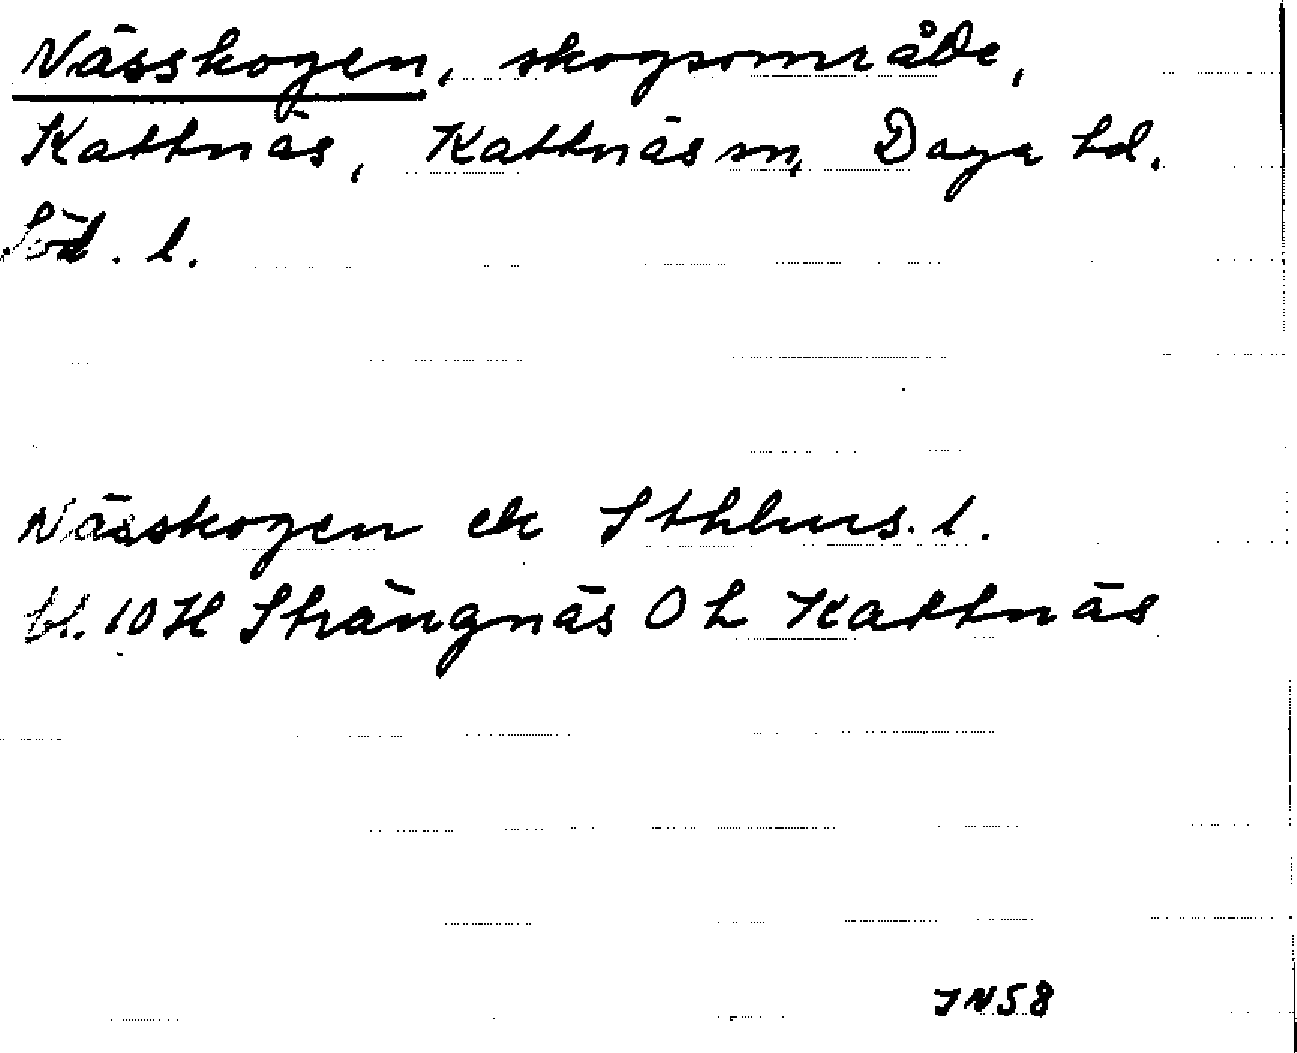 Nässkogen, skogsområde,
Kattnäs, Kattnäs sn, Daga hd.
Söd. l.
Nässkogen ek Sthlms. l.
bl. 10 H Strängnäs O L Kattnäs
IN58